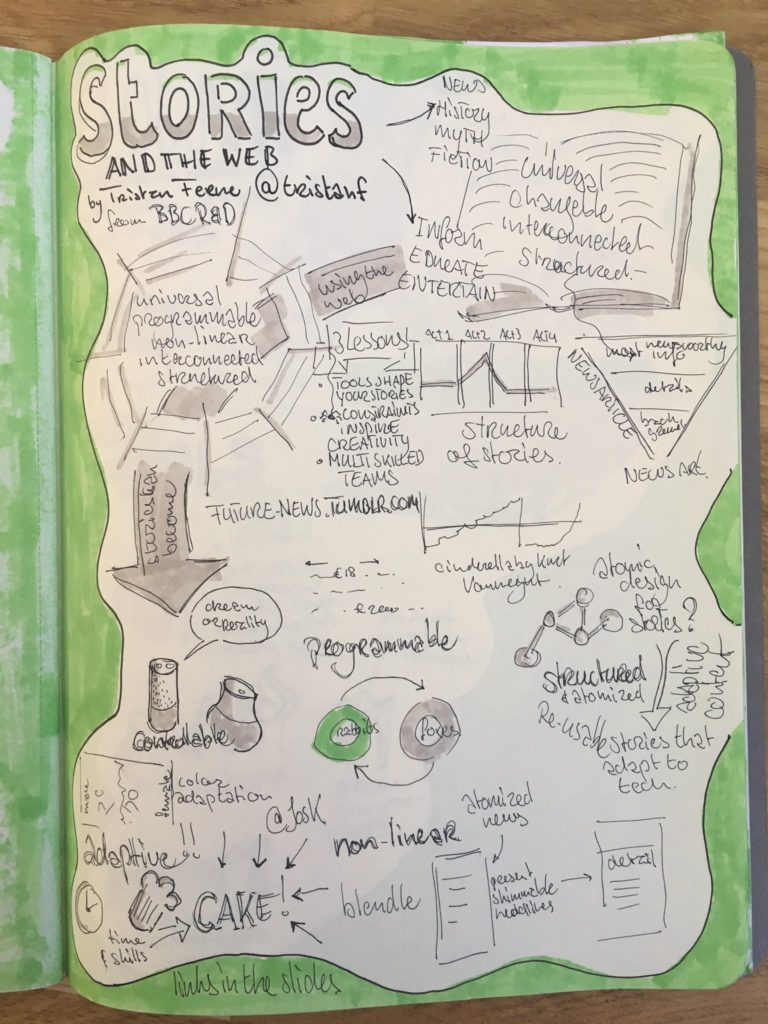 Stories
AND THE WEB
by Tristan Ferne @tristanf
from BBC R&D
NEWS
HISTORY
MYTH
FICTION
universal
changeble
interconnected
structured.
Inform
EDUCATE
ENTERTAIN
using the
web
universal
programmable
non-linear
interconnected
structured
3 Lessons!
• TOOLS SHAPE
YOUR STORIES
• CONSTRAINTS
INSPIRE
CREATIVITY
• MULTI SKILLED
TEAMS
ACT 1 ACT 2 ACT 3 ACT 4
structure
of stories.
most newsworthy
info
details
back
ground
NEWS ARTICLE
NEWS ARE.
FUTURE-NEWS.TUMBLR.COM
cinderella by Kurt
Vonnegut.
stories
become
dream
or reality
controllable
programmable
rabbits
foxes
atomic
design
for
stories?
structured
& atomized
Re-usable
adaptive
content
stories that
adapt to
tech.
male
female
color
adaptation
adaptive!!
@JosK
non-linear
atomized
news
CAKE!
blendle
present
skimmable
headlines
detail
time
& skills
links in the slides